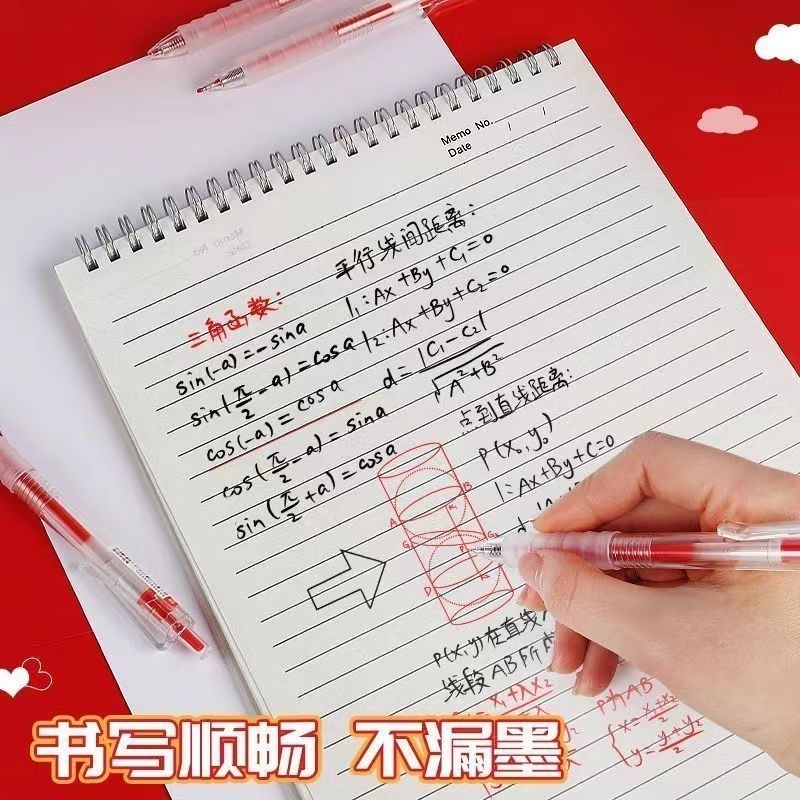 Memo No.
Date / /
平行线间距离：
l₁：Ax+By+C₁=0
l₂：Ax+By+C₂=0
d=|C₁-C₂|/√A²+B²
三角函数：
sin(-a)=-sina
sin(π/2-a)=cosa
cos(-a)=cosa
cos(π/2-a)=sina
sin(π/2+a)=cosa
点到直线距离：
P(x₀,y₀)
l：Ax+By+C=0
A
B
K₁
G₁
G₂
D
P(x,y)在直线
线段AB所
x₁+λx₂
P为AB
x=x₁+x₂/2
y=y₁+y₂/2
书写顺畅 不漏墨